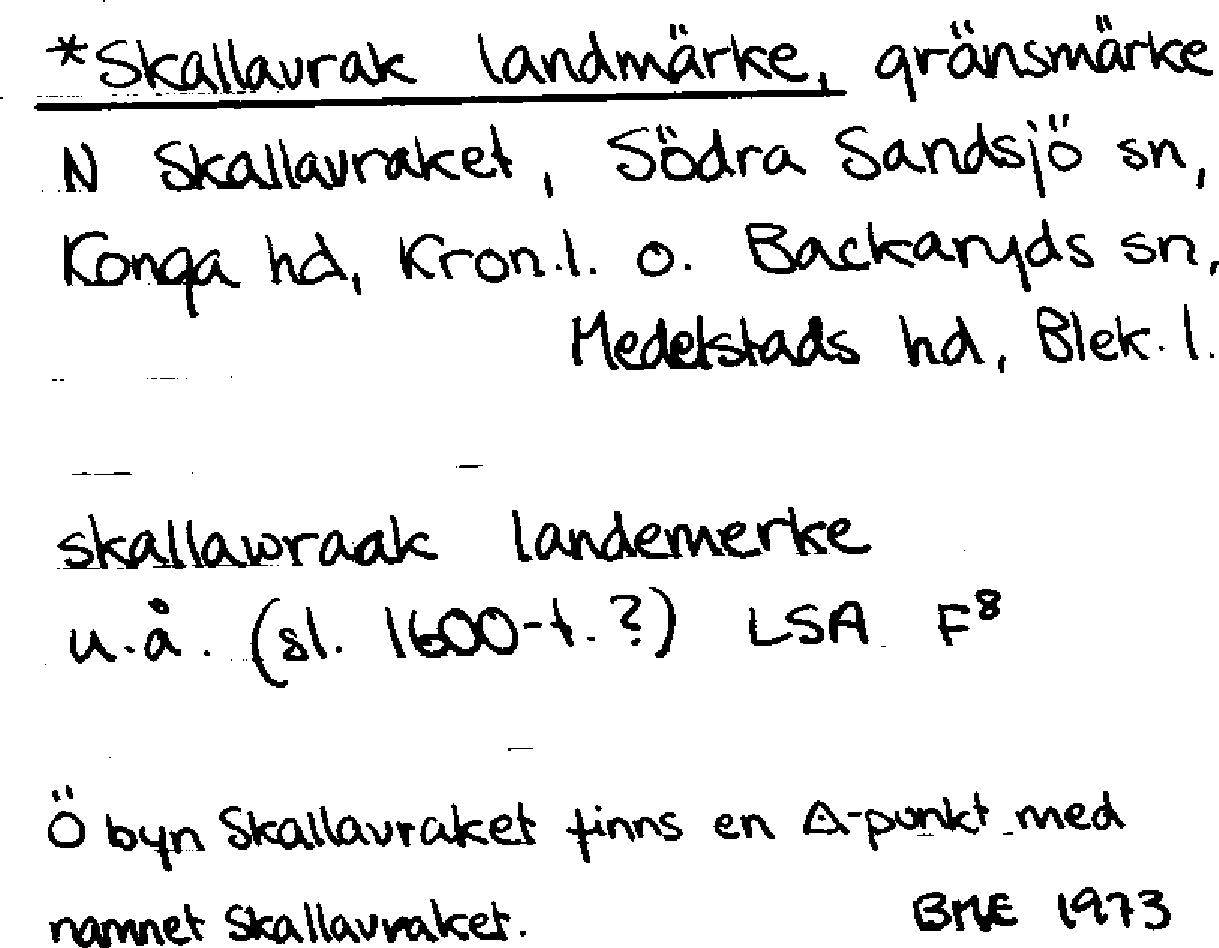 *Skallavrak landmärke, gränsmärke
N Skallavraket, Södra Sandsjö sn,
Konga hd, Kron.l. o. Backaryds sn,
Medelstads hd, Blek. l.
skallawraak landemerke
u.å. (sl. 1600-t.?) LSA F⁸
Ö byn Skallavraket finns en Δ-punkt med
namnet Skallavraket. BME 1973